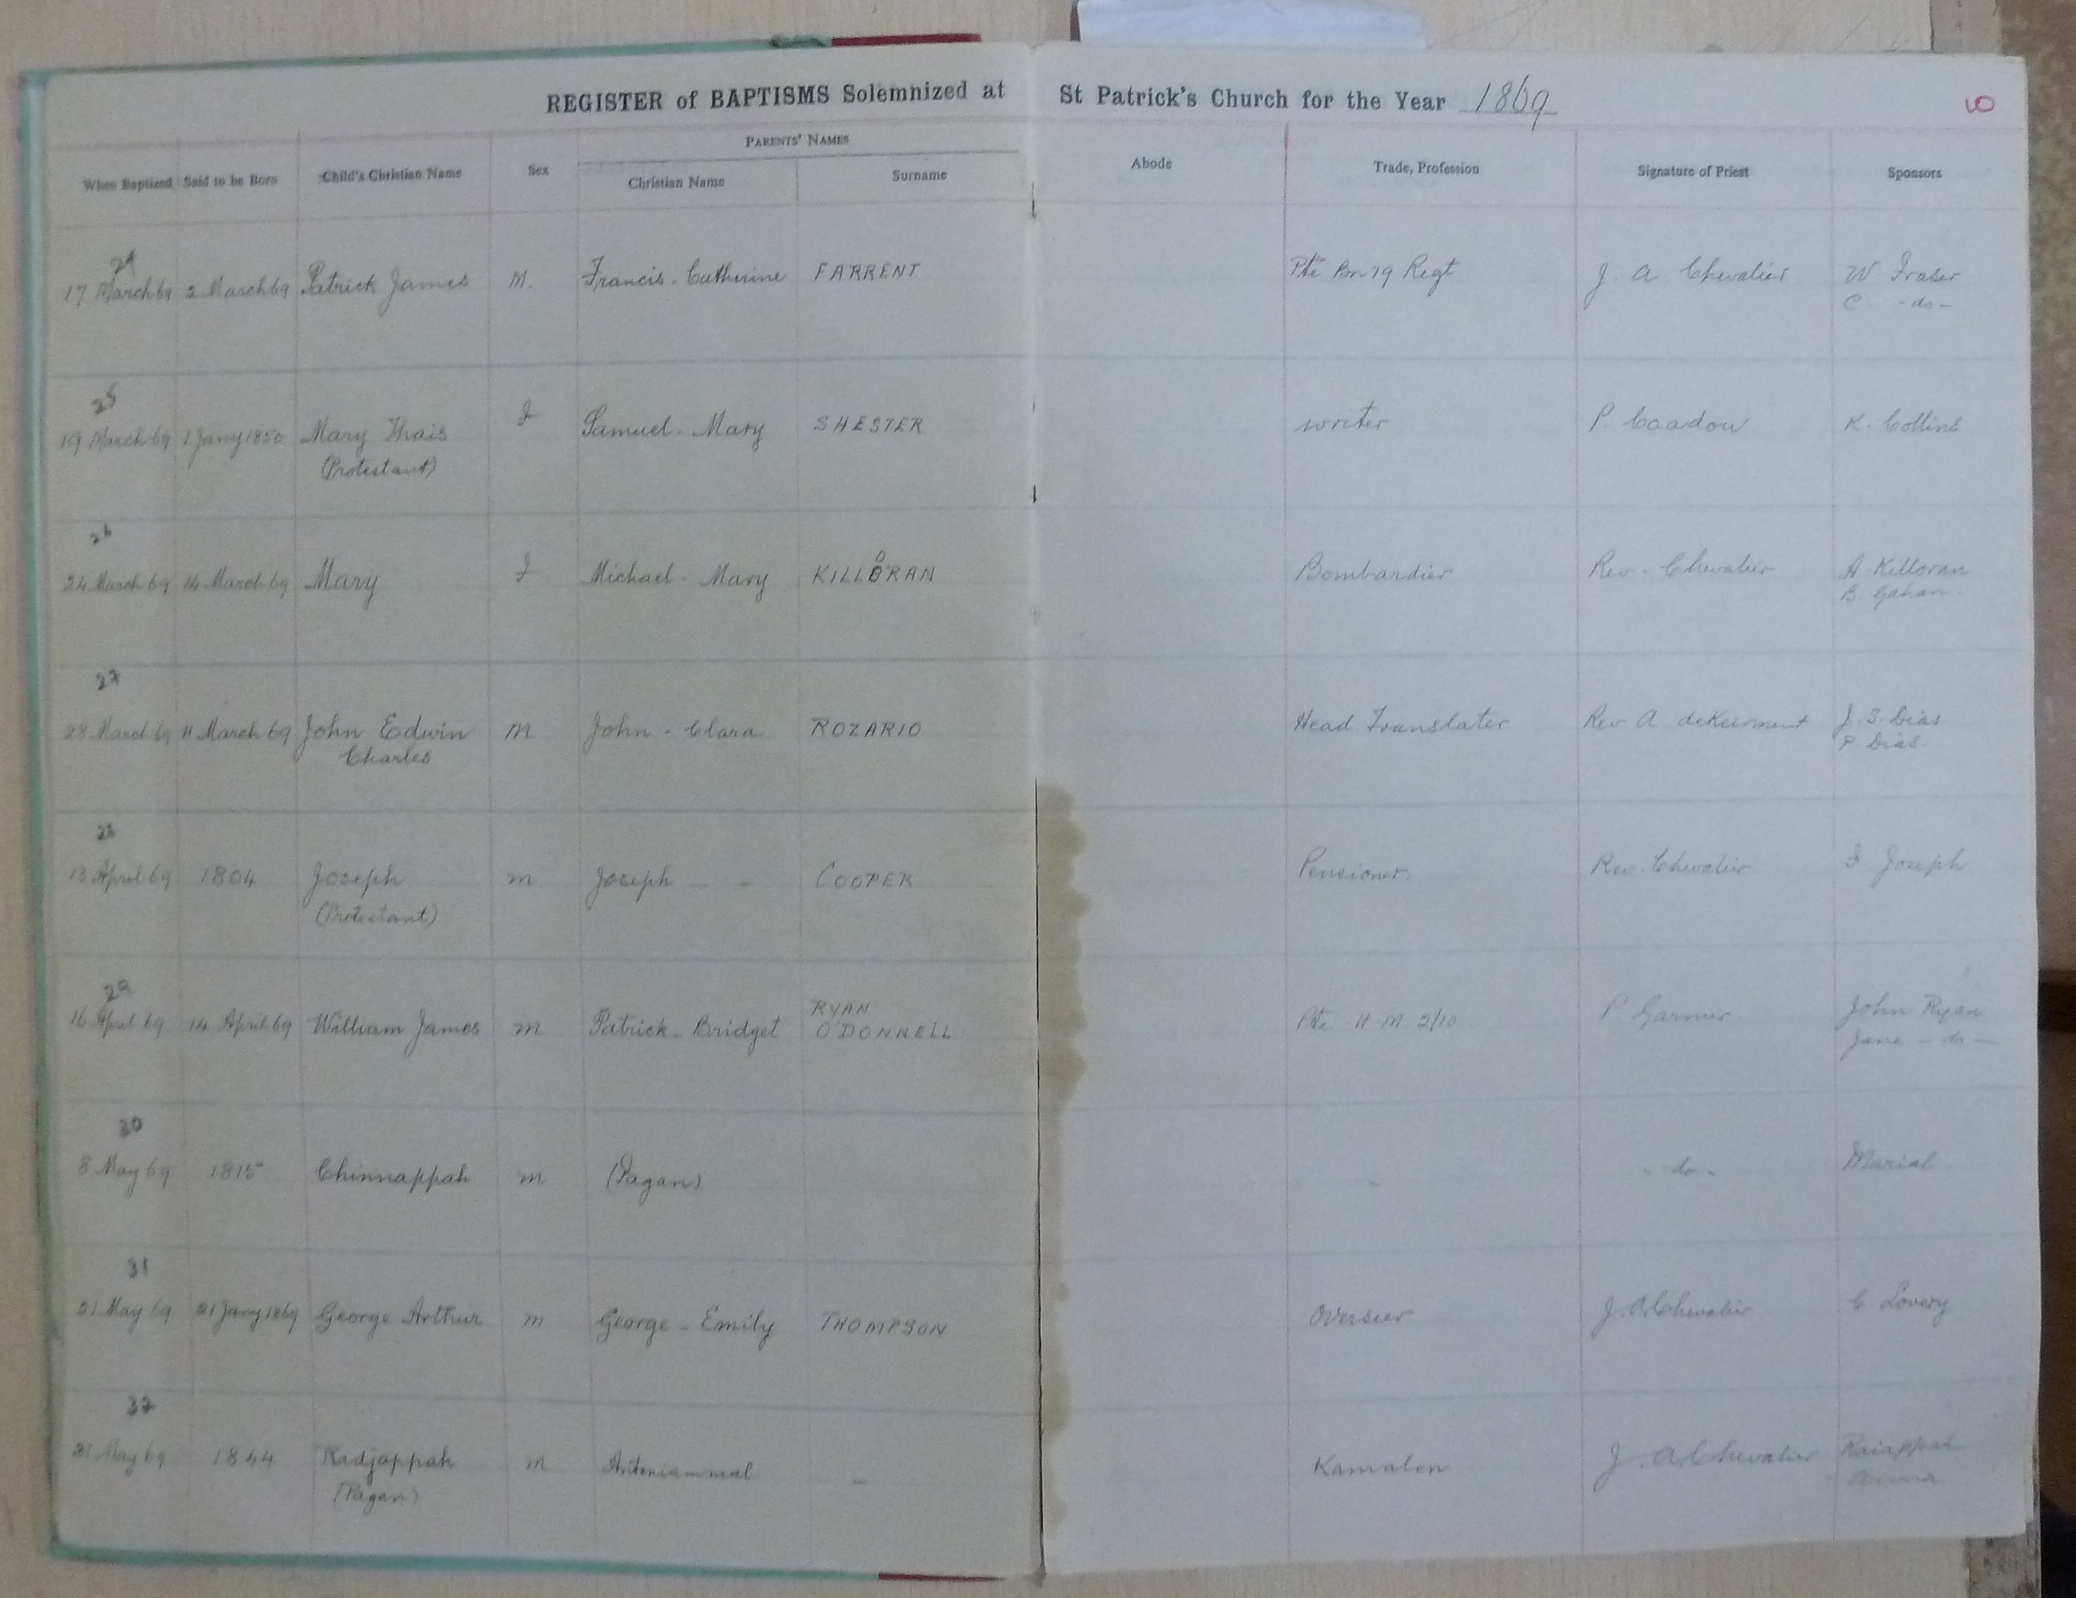 REGISTER of BAPTISMS Solemnized at St Patrick's Church for the Year 1869
PARENTS' NAMES
When Baptized Said to be Born Child's Christian Name Sex Christian Name Surname Abode Trade, Profession Signature of Priest Sponsors
24
17 March 69 2 March 69 Patrick James M. Francis. Catherine FARRENT Pte Bn 19 Regt J. A Chevalier W Fraser
C. - do -
25
19 March 69 1 Jany 1850 Mary Thais F Samuel - Mary SHESTER writer P. Coadou K. Collins
(Protestant)
26
24 March 69 14 March 69 Mary F Michael - Mary KILLORAN Bombardier Rev - Chevalier A. Killoran
B. Gahan.
27
28 March 69 11 March 69 John Edwin M John - Clara ROZARIO Head Translater Rev A J. S. Dias
Charles P. Dias
28
13 April 69 1804 Joseph m Joseph - - COOPER Pensioner. Rev. Chevalier Joseph
(Protestant)
29
16 April 69 14 April 69 William James m Patrick - Bridget RYAN
O'DONNELL Pte H. M. 2/10 P Garnier John Ryan
Jane - do -
30
8 May 69 1815 Chinnappah m (Pagan) - - do - Marial
31
21 May 69 21 Jany 1869 George Arthur m George - Emily THOMPSON Overseer J. A. Chevalier C Lovery
32
31 May 69 1844 Radjappah m Antoniammal - J. A. Chevalier Raiappah
(Pagan) Anna